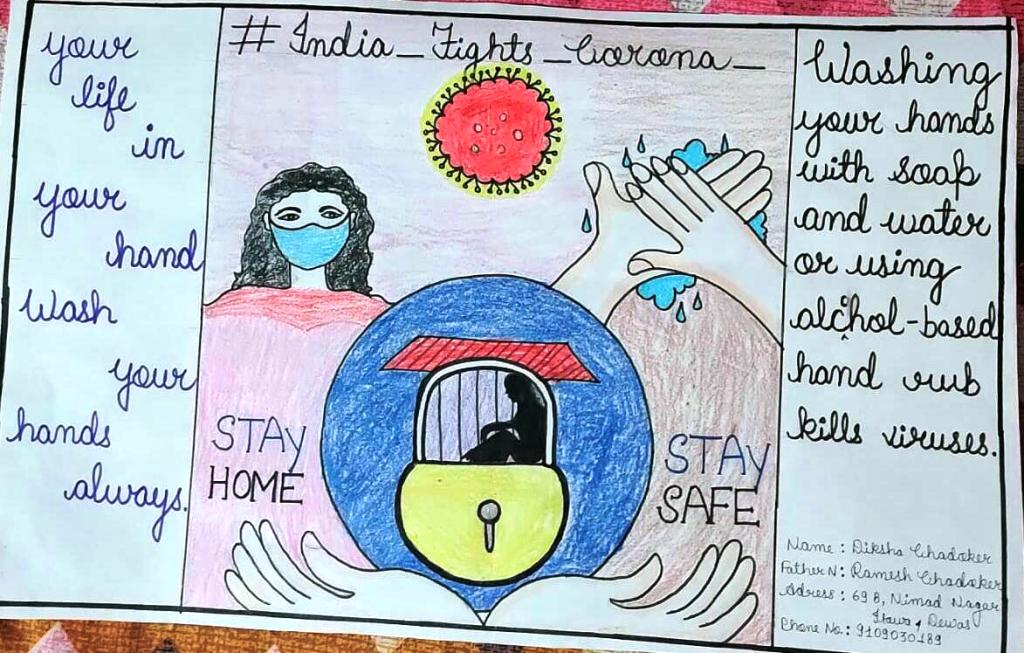 # India_Fights_Corona_
your
life
in
your
hand
Wash
your
hands
always.
STAY
HOME
STAY
SAFE
Washing
your hands
with soap
and water
or using
alchol-based
hand rub
kills viruses.
Name : Diksha Chadoker
Father N: Ramesh Chadoker
Address : 69 B, Nimad Nagar
Dewas
Phone No.: 9109030189